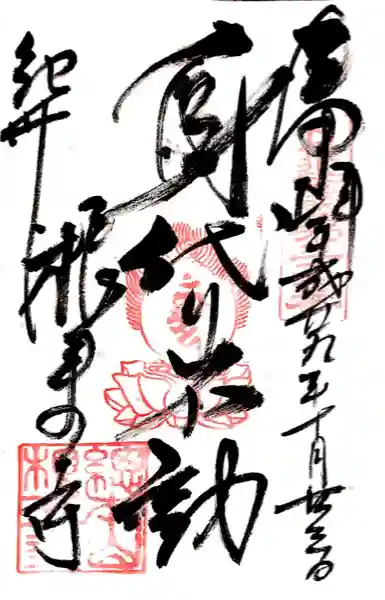 奉拝 平成廿九年十月廿三日
身代り不動
紀州 根来寺